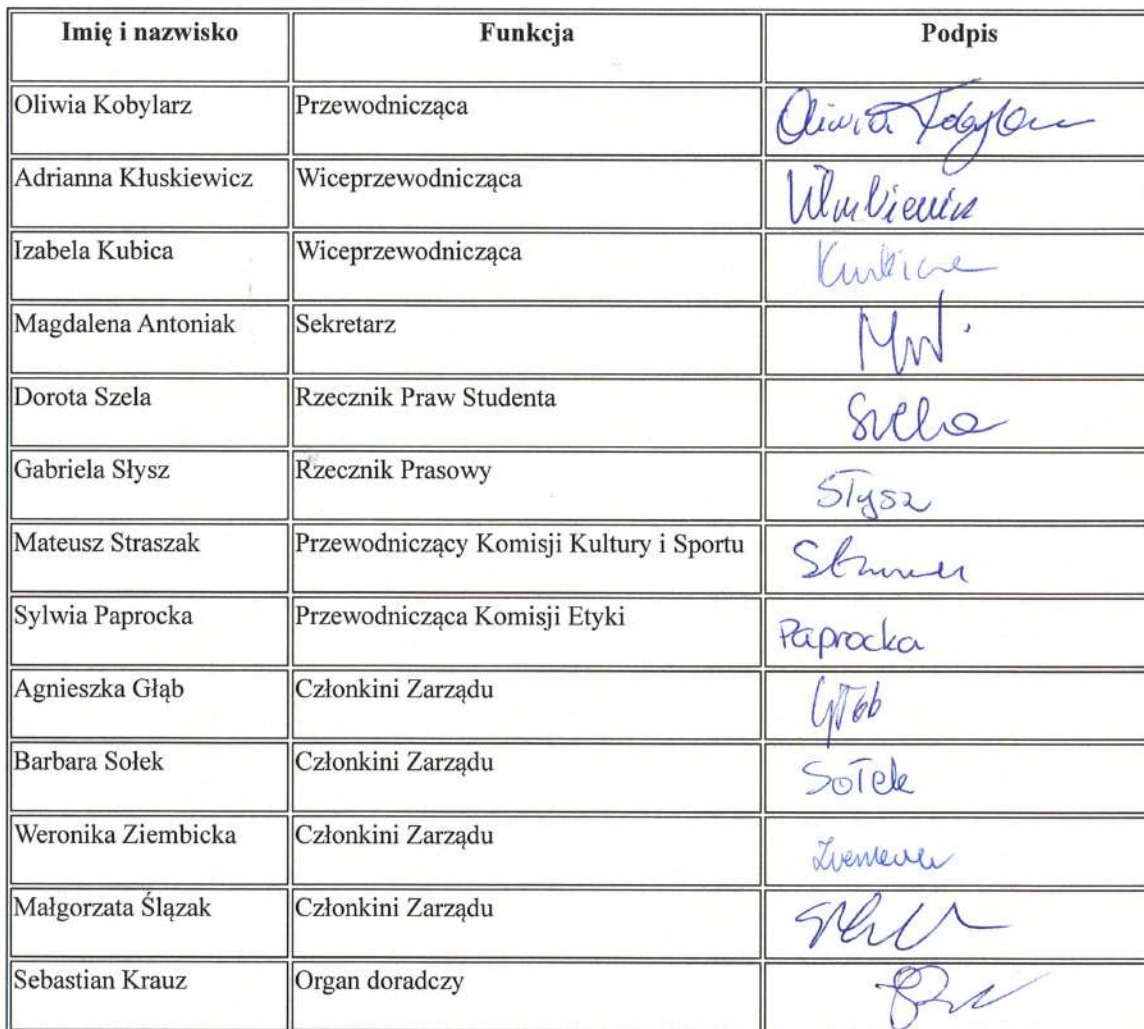 Imię i nazwisko Funkcja Podpis
Oliwia Kobylarz Przewodnicząca Oliwia
Adrianna Kłuskiewicz Wiceprzewodnicząca
Izabela Kubica Wiceprzewodnicząca
Magdalena Antoniak Sekretarz
Dorota Szela Rzecznik Praw Studenta
Gabriela Słysz Rzecznik Prasowy Słysz
Mateusz Straszak Przewodniczący Komisji Kultury i Sportu
Sylwia Paprocka Przewodnicząca Komisji Etyki Paprocka
Agnieszka Głąb Członkini Zarządu
Barbara Sołek Członkini Zarządu Sołek
Weronika Ziembicka Członkini Zarządu
Małgorzata Ślązak Członkini Zarządu
Sebastian Krauz Organ doradczy